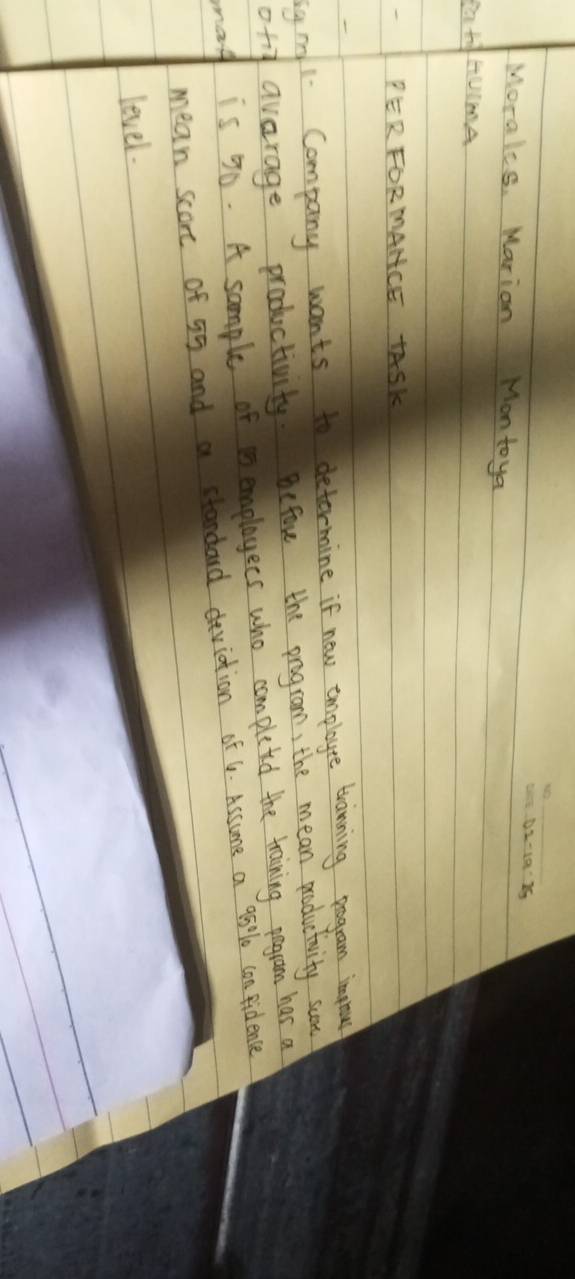 NO.
DATE 02-19-25
Morales, Marian Montoya
HUMA
PERFORMANCE TASK
1. Company wants to determine if new employe trainning program improve
avarage productivity. Before the program, the mean productivity score
is 50. A sample of employees who completed the training program has a
mean score of 55 and a standard deviation of 6. Assume a 95% confidence
level.